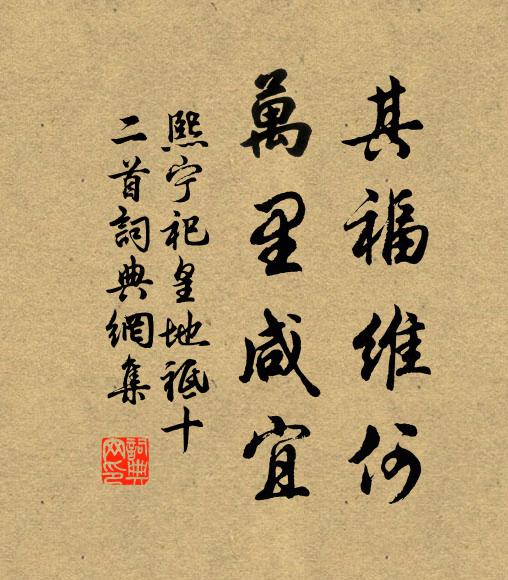 其福維何
萬里咸宜
熙宁祀皇地祗十
二首詞典網集
詞典
网印